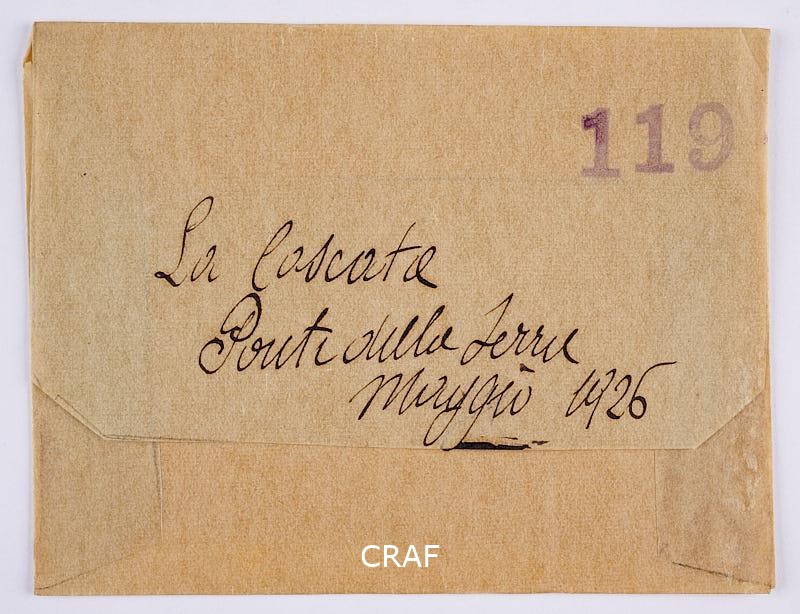 119
La Cascata
Ponte della Serra
Maggio 1926
CRAF